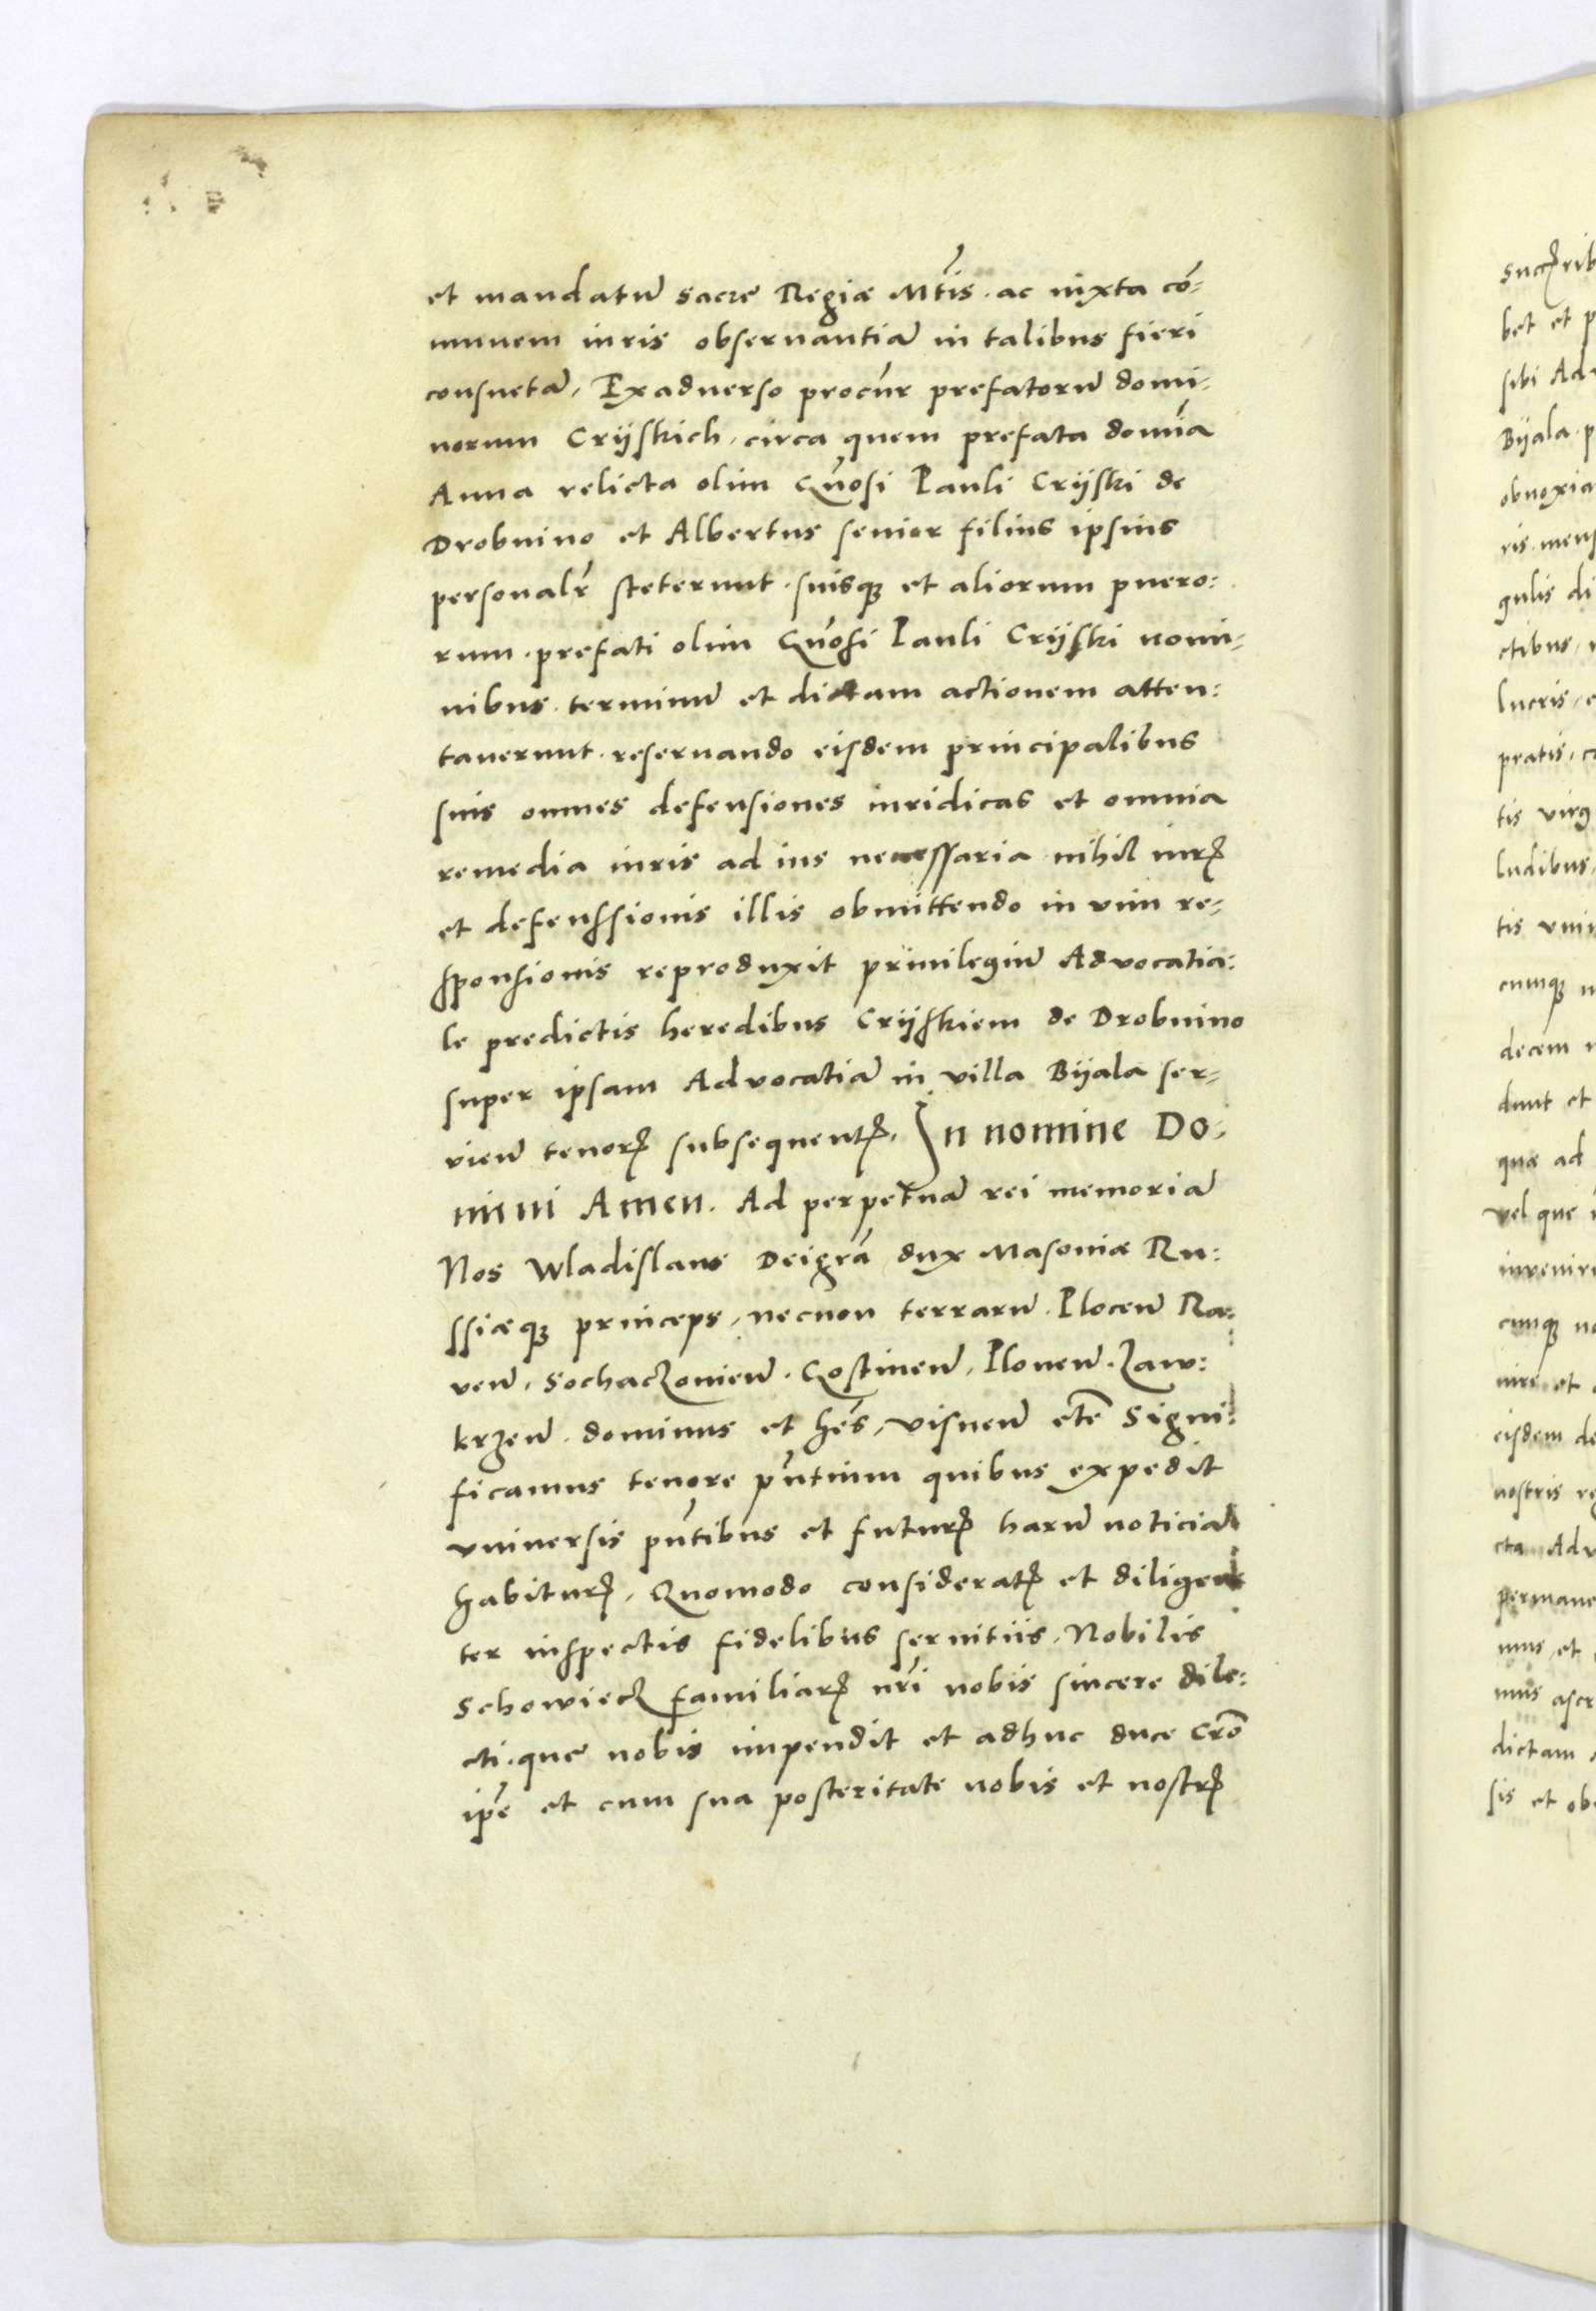 et mandatū sacre Regiæ Mt̄is . ac iuxta cō-
munem iuris obseruantiā in talibus fieri
consuetā, Ex aduerso procūr prefatorū domi-
norum Crijskich, circa quem prefata domīa
Anna relicta olim Gn̄osi Pauli Crijski de
Drobnino et Albertus senior filius ipsius
personalr̄ steterunt . suisqȝ et aliorum puero:
rum . prefati olim Gn̄osi Pauli Crijski nomi-
nibus . terminū et dictam actionem atten:
tauerunt . reseruando eisdem principalibus
suis omnes defensiones iuridicas et omnia
remedia iuris ad ius necessaria nihil iurꝭ
et defenssionis illis obmittendo in vim re-
sponsionis reproduxit priuilegiū Aduocatia:
le predictis heredibus Crijskiem de Drobnino
super ipsam Aduocatiā in villa Bijala ser-
vieñ tenorꝭ subsequentꝭ, In nomine Do:
mini Amen. Ad perpetuā rei memoriā
Nos Wladislaus Dei gr̄a dux Masoniæ Ru:
ssiæqȝ princeps, necnon terrarū . Ploceñ Ra:
veñ, Sochaczonieñ . Gostineñ, Ploneñ . Zaw:
krzeñ . dominus et hēs, visneñ etc̄ Signi:
ficamus tenore pn̄tium quibus expedit
vniuersis pn̄tibus et futurꝭ harū noticiā
habiturꝭ, Quomodo consideratꝭ et diligen
ter inspectis fidelibus seruitiis, Nobilis
Schowiecz familiarꝭ nr̄i nobis sincere dile:
cti . que nobis impendit et adhuc duce Cr̄o
ip̄e et cum sua posteritate nobis et nostrꝭ
bet et p
sibi Ad
Bijala . p
obnoxia
gulis di
ctibus,
lucris,
pratis,
tis
ludibus
tis
cumqȝ
decem
dunt et
quæ ad
vel que
cunqȝ
eisdem de
nostris
cta Adv
permane
mus, et
dictam
sis et ob